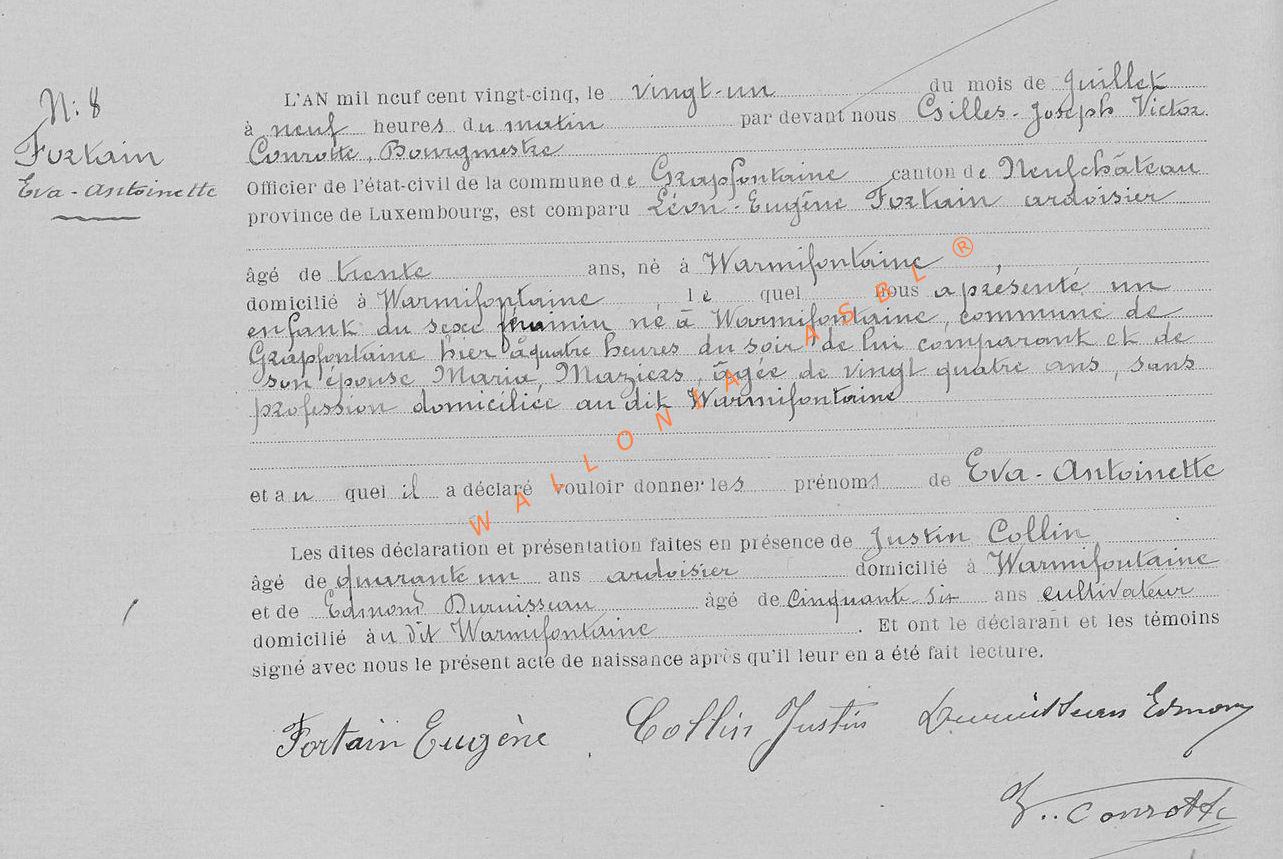 N: 8
Fortain
Eva-Antoinette
L'AN mil neuf cent vingt-cinq, le vingt-un du mois de Juillet
à neuf heures du matin par devant nous Gilles-Joseph Victor
Conrotte, Bourgmestre
Officier de l'état-civil de la commune de Grapfontaine canton de Neufchâteau
province de Luxembourg, est comparu Léon-Eugène Fortain ardoisier
âgé de trente ans, né à Warmifontaine,
domicilié à Warmifontaine, le quel nous a présenté un
enfant du sexe féminin né à Warmifontaine, commune de
Grapfontaine hier à quatre heures du soir de lui comparant et de
son épouse Maria, Maziers, âgée de vingt quatre ans, sans
profession domiciliée au dit Warmifontaine
et au quel il a déclaré vouloir donner les prénoms de Eva-Antoinette
Les dites déclaration et présentation faites en présence de Justin Collin
âgé de quarante un ans ardoisier domicilié à Warmifontaine
et de Edmond Duruisseau âgé de cinquante six ans cultivateur
domicilié au dit Warmifontaine. Et ont le déclarant et les témoins
signé avec nous le présent acte de naissance après qu'il leur en a été fait lecture.
Fortain Eugène Collin Justin Duruisseau Edmond
V. Conrotte
WALLONIA ASBL ®